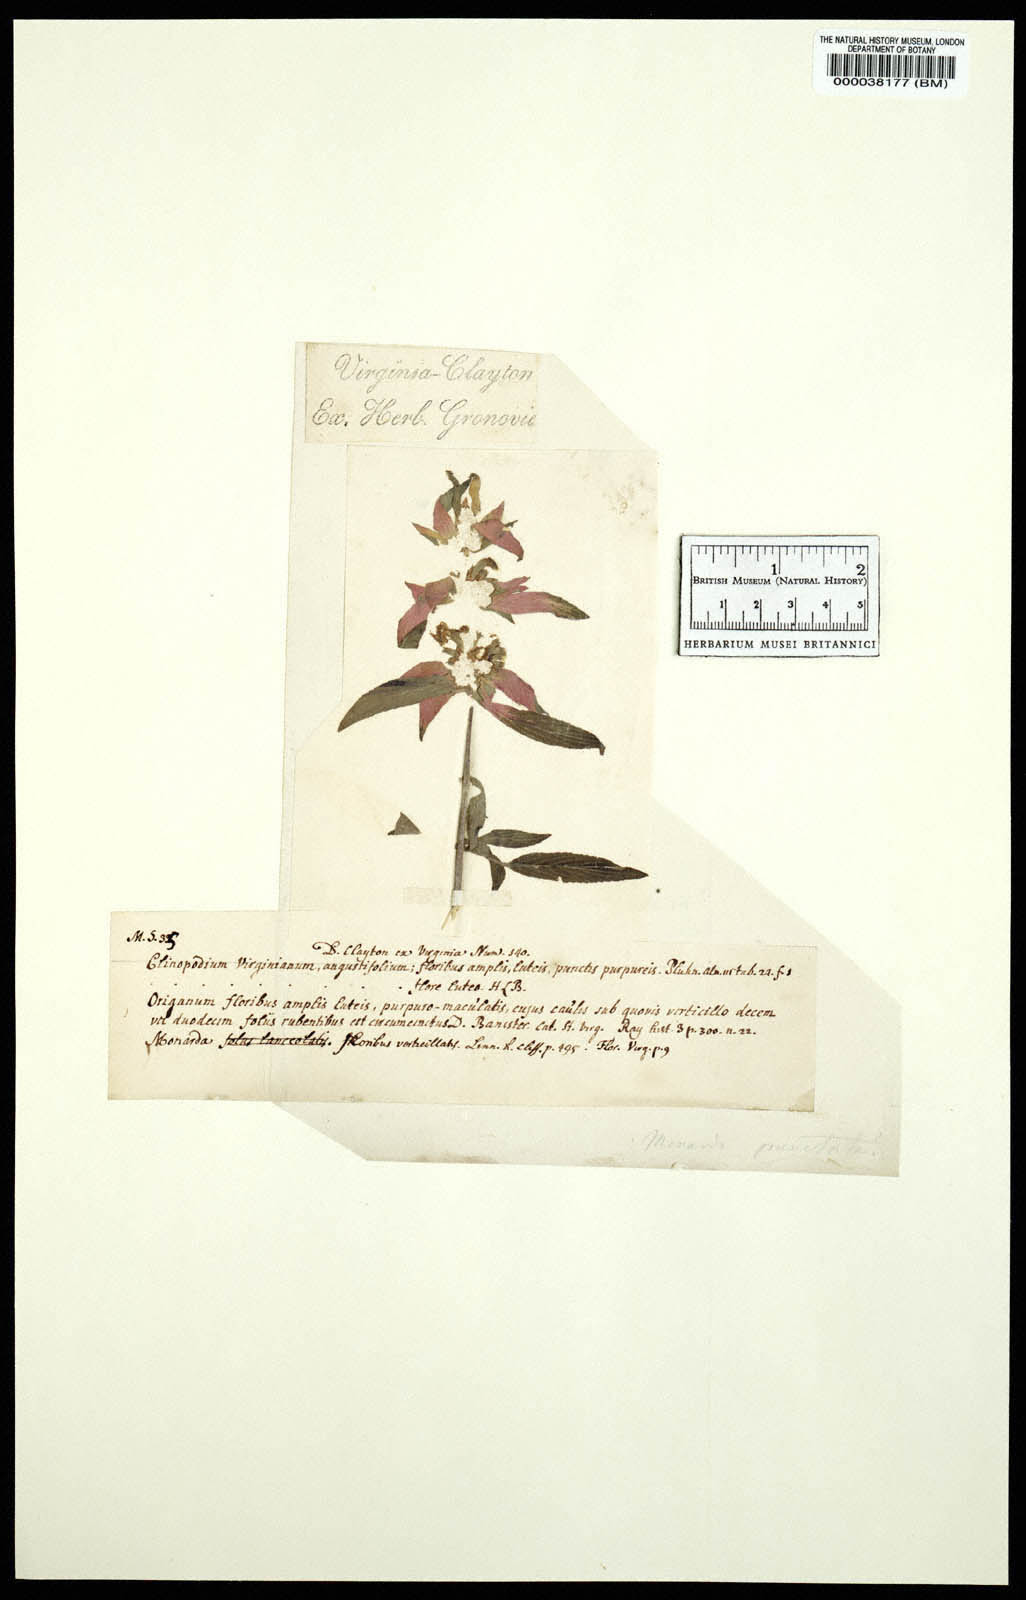 THE NATURAL HISTORY MUSEUM, LONDON
DEPARTMENT OF BOTANY
000038177 (BM)
Virginia-Clayton
Ex. Herb. Gronovii
1 2
BRITISH MUSEUM (NATURAL HISTORY)
1 2 3 4 5
HERBARIUM MUSEI BRITANNICI
M. S. 35
D. Clayton ex Virginia Num. 140.
Clinopodium Virginianum, angustifolium; floribus amplis, luteis, punctis purpureis. Plukn. alm. 111 tab. 24. f. 1
. . . . . . . flore luteo. H L B.
Origanum floribus amplis luteis, purpuro-maculatis, cujus caulis sub quovis verticillo decem
vel duodecim foliis rubentibus est circumcinctus. D. Banister Cat. St. Virg. Ray hist. 3 p. 300. n. 22.
Monarda folus lanceolatis. floribus verticillatis. Linn. h. Cliff. p. 495. Flor. Virg. p. 9
Monarda punctata